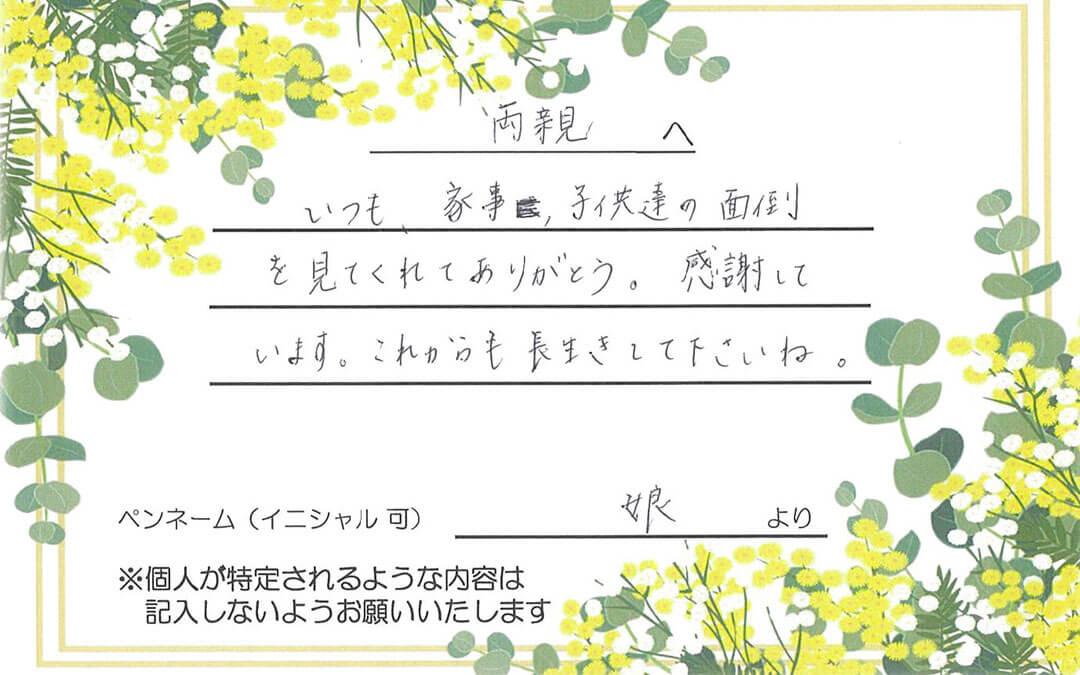 両親 へ
いつも、家事、子供達の面倒
を見てくれてありがとう。感謝して
います。これからも長生きして下さいね。
ペンネーム（イニシャル 可） 娘 より
※個人が特定されるような内容は
記入しないようお願いいたします